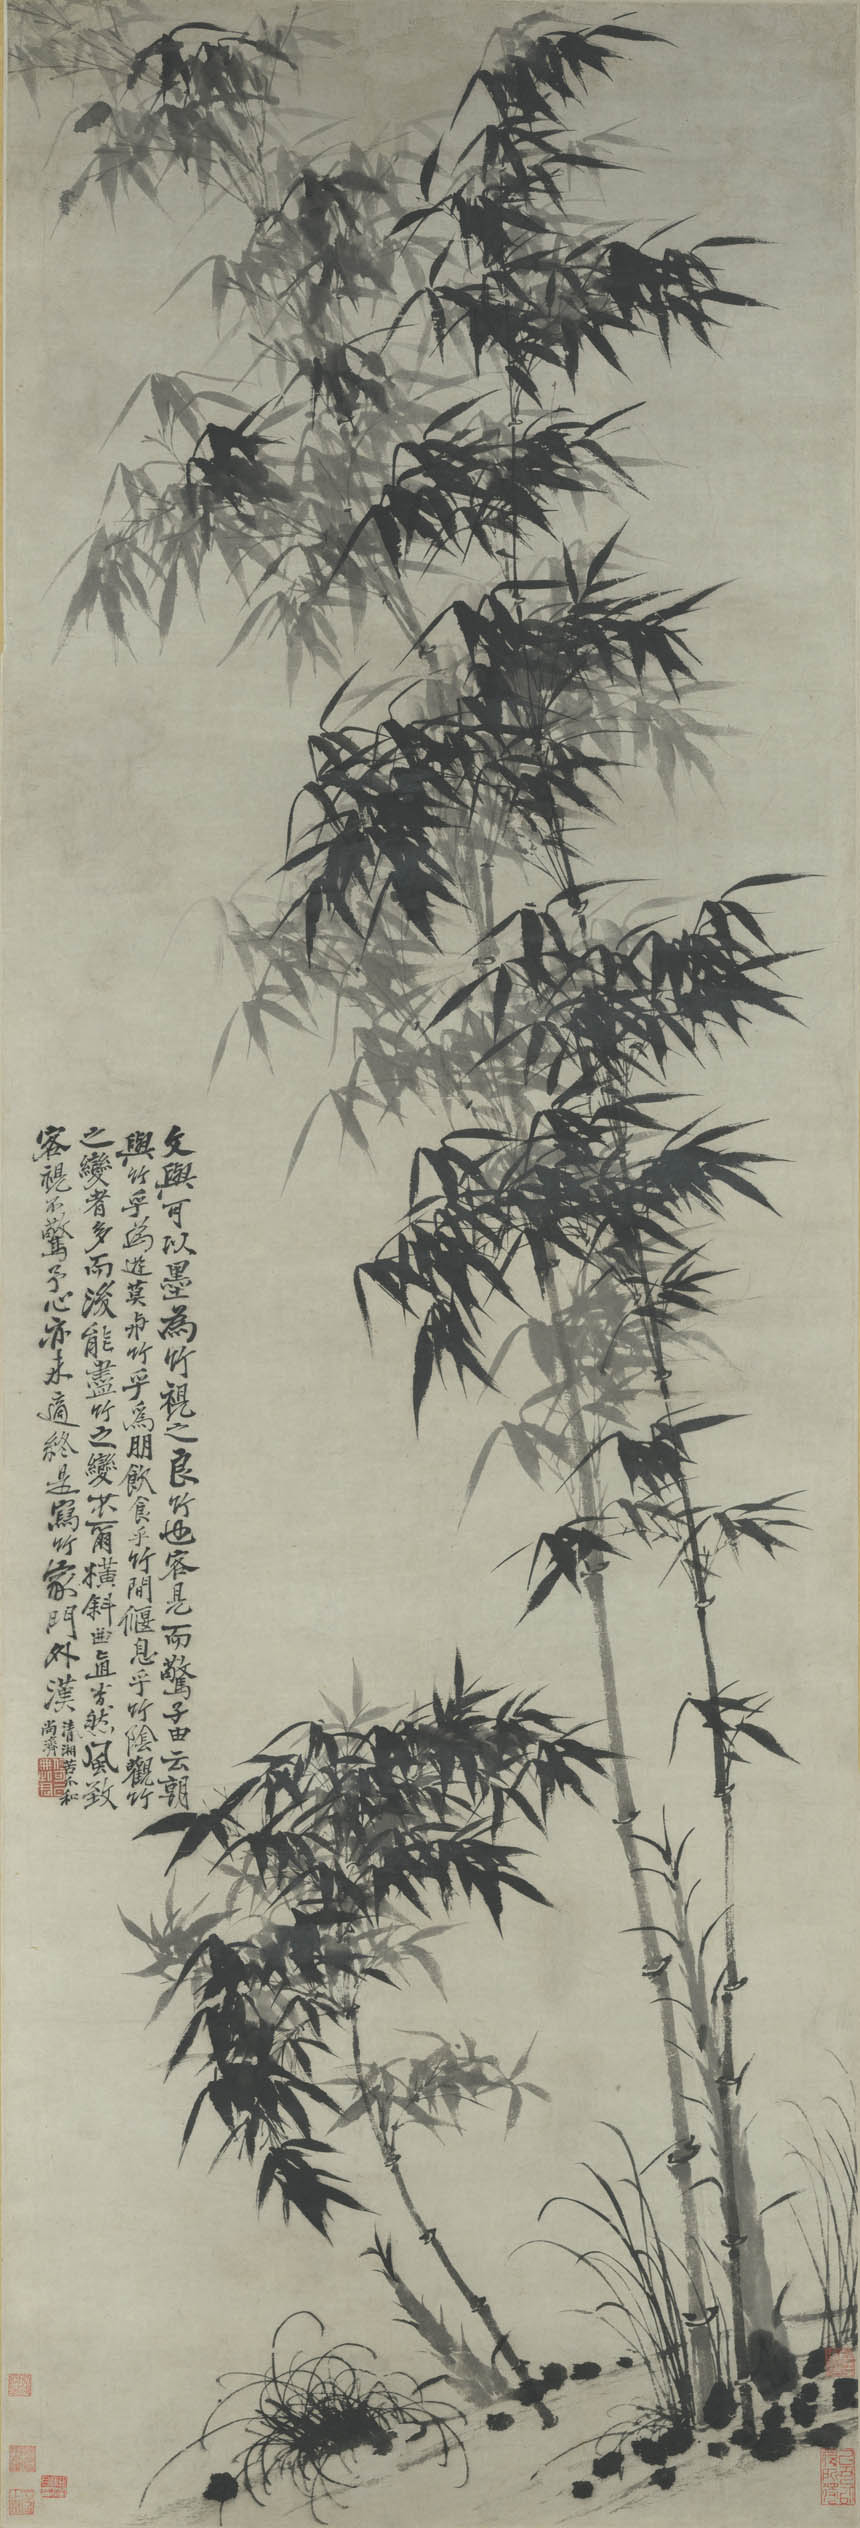 文與可以墨為竹視之良竹也客見而驚子由云朝
與竹乎為遊莫與竹乎為朋飲食乎竹間偃息乎竹陰觀竹
之變者多而後能盡竹之變其爾橫斜曲直方然風致
客視不驚予心亦未適終是寫竹家門外漢
清湘苦瓜和
尚濟